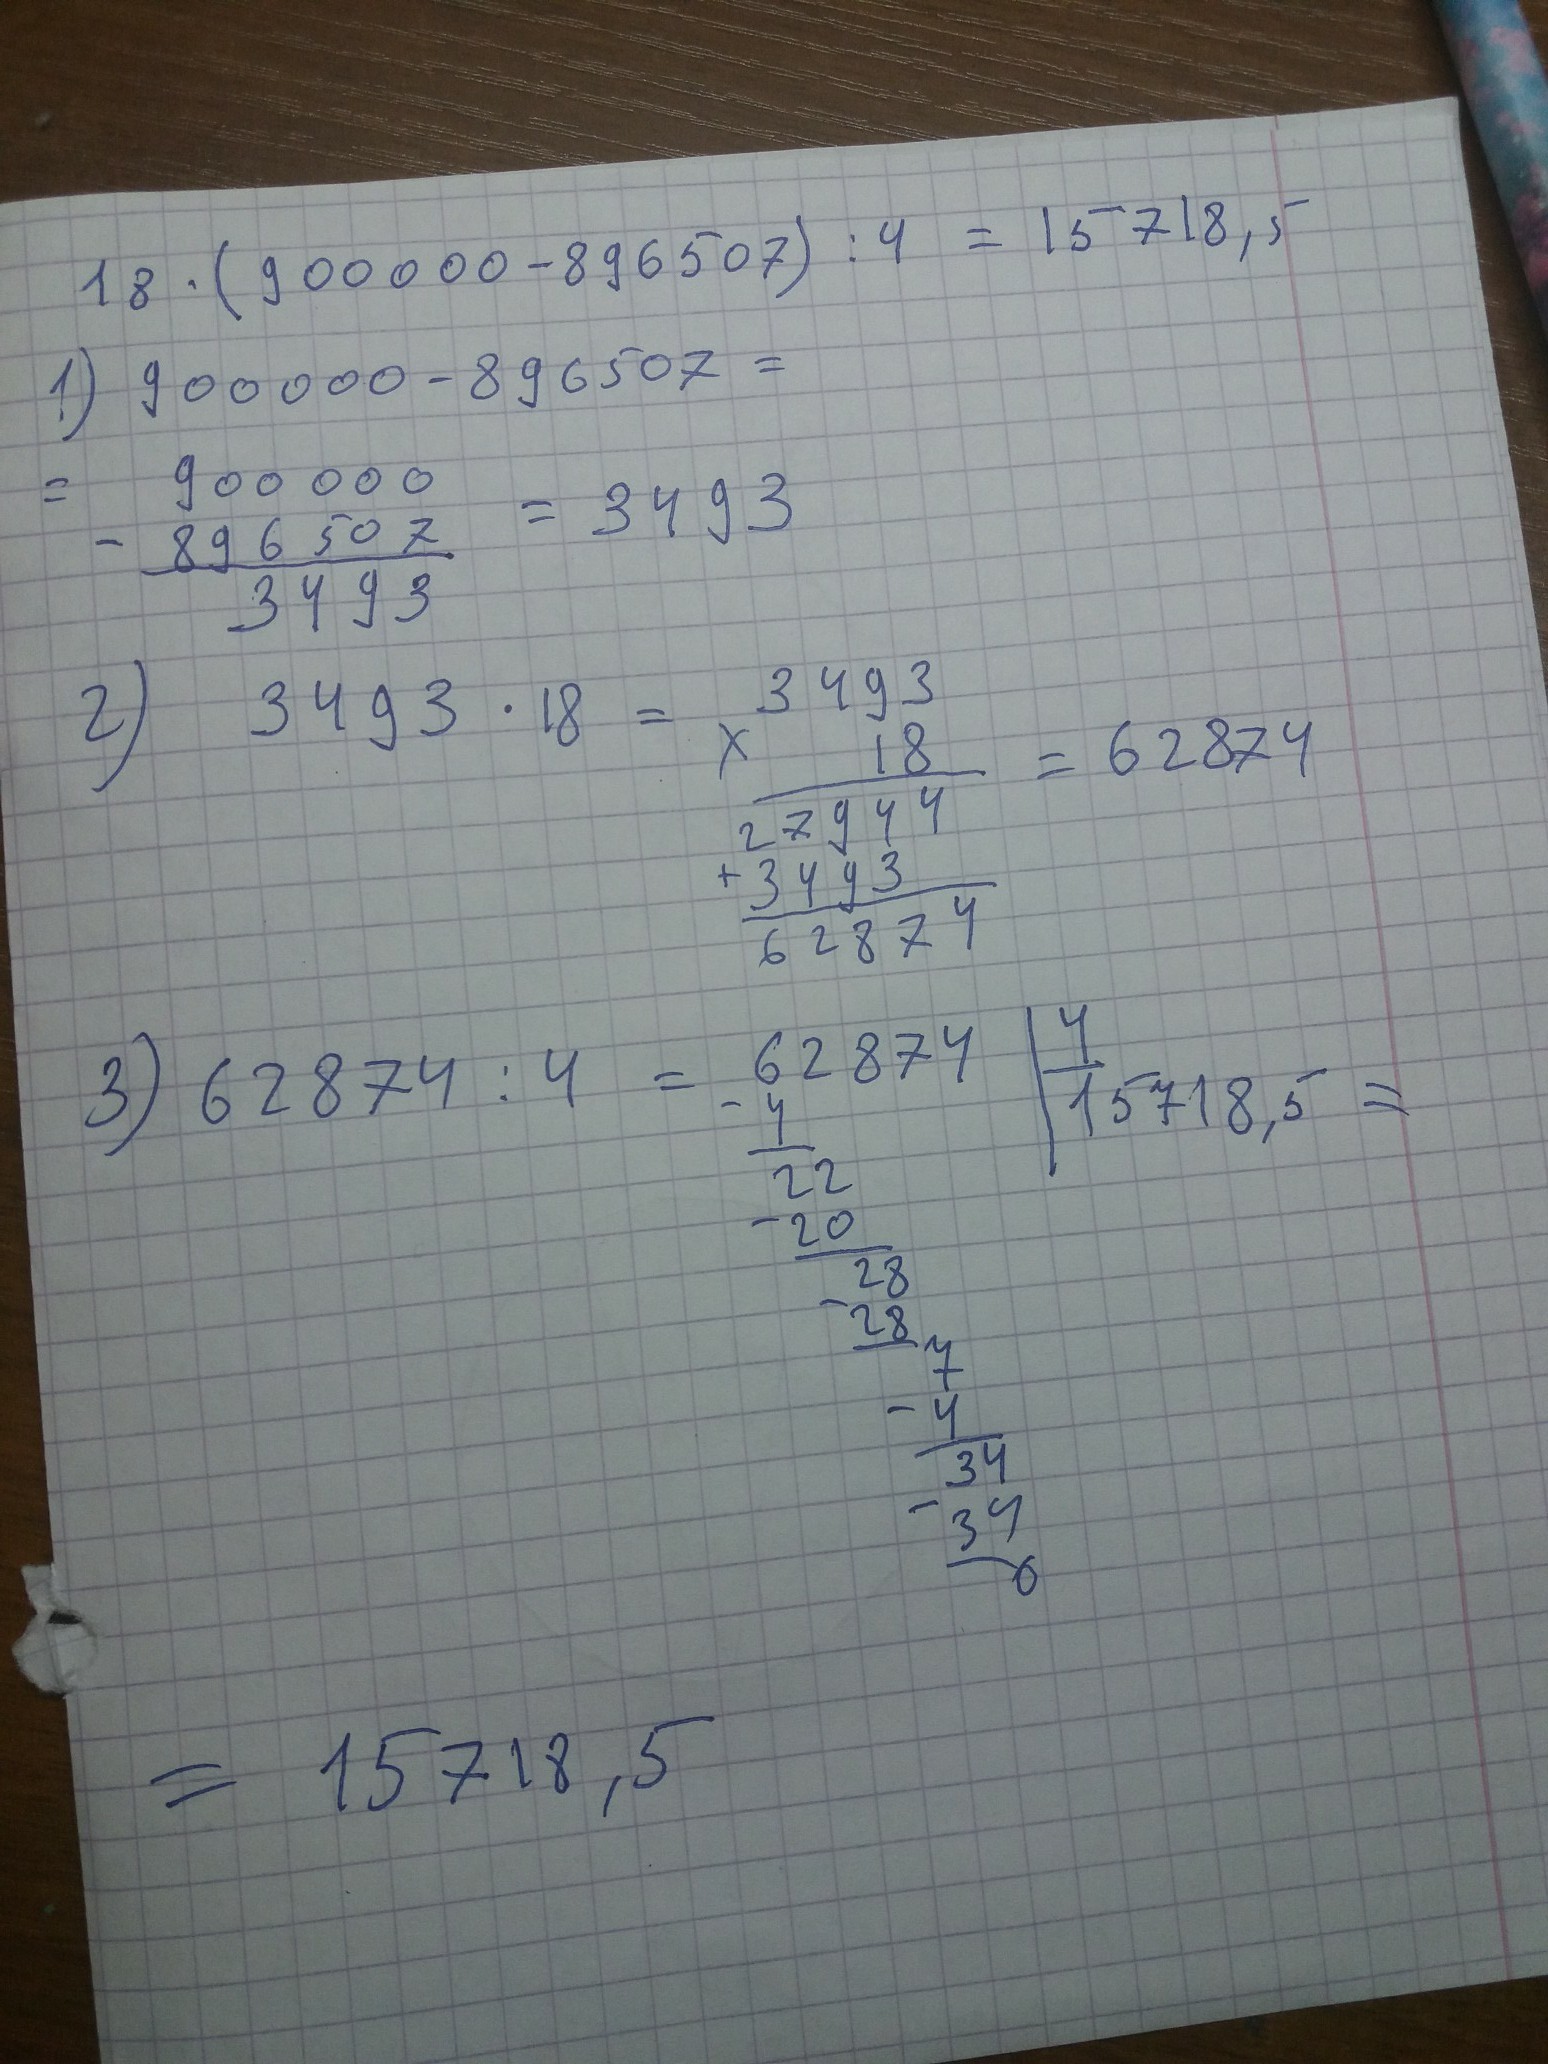 18 · (900000 - 896507) : 4 = 15718,5
1) 900000 - 896507 =
= 900000
- 896507 = 3493
3493
2) 3493 · 18 = 3493
x 18 = 62874
27944
+ 3493
62874
3) 62874 : 4 = 62874 | 4
- 4 15718,5 =
22
- 20
28
- 28
7
- 4
34
- 34
0
= 15718,5